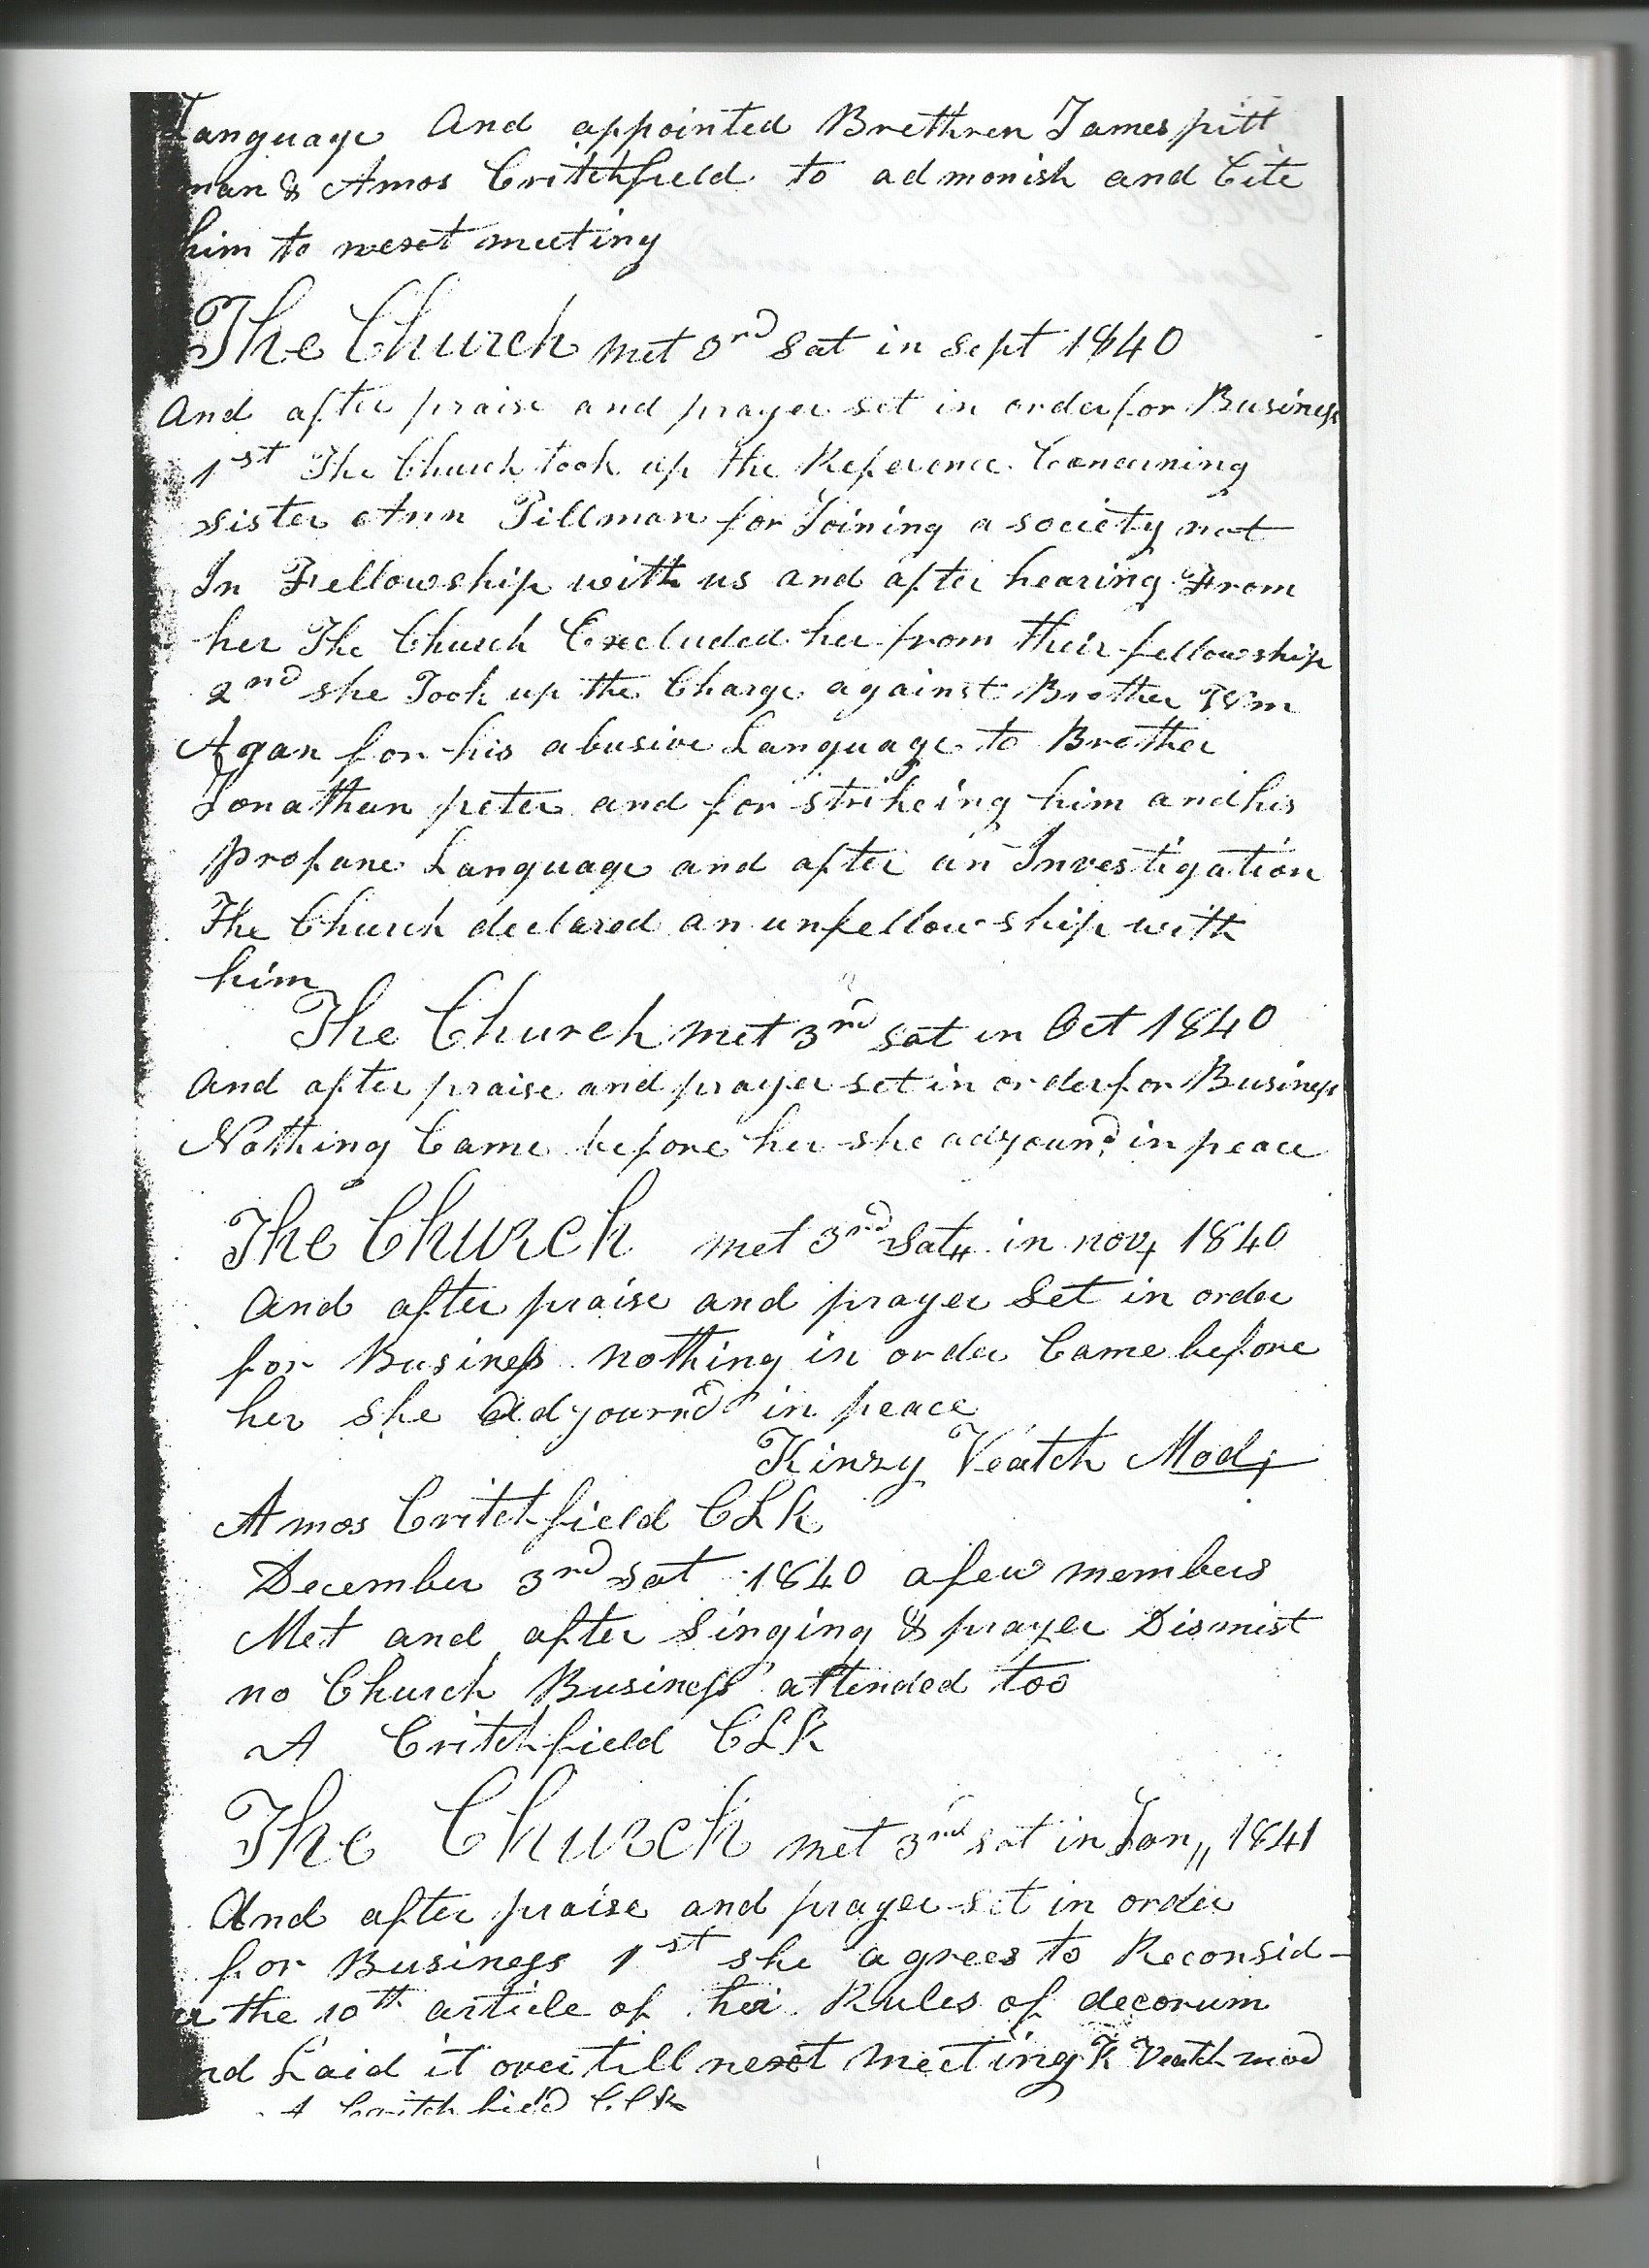 Language And appointed Brethren James pitt
man & Amos Critchfield to admonish and Cite
him to next meeting
The Church met 3rd Sat in Sept 1840
And after praise and prayer set in order for Business
1st The Church took up the Reference Concerning
sister Ann Pillman for Joining a society not
In Fellowship with us and after hearing From
her The Church Excluded her from their fellowship
2nd she Took up the Charge against Brother Wm
Agan for his abusive Language to Brother
Jonathan peter and for strikeing him and his
profane Language and after an Investigation
The Church declared an unfellowship with
him
The Church met 3rd sat in Oct 1840
And after praise and prayer set in order for Business
Nothing Came before her she adyournd in peace
The Church met 3rd Sat,, in nov, 1840
And after praise and prayer Set in order
for Business nothing in order Came before
her she Adyournd in peace
Kinzy Veatch Mod,
Amos Critchfield CLk
December 3rd sat 1840 a few members
Met and after Singing & prayer Dismist
no Church Business attended too
A Critchfield CLK
The Church met 3rd sat in Jan,, 1841
And after praise and prayer set in order
for Business 1st she agrees to Reconsid-
er the 10th article of her Rules of decorum
nd Laid it over till next meeting K Veatch mod
A Critchfield CLk